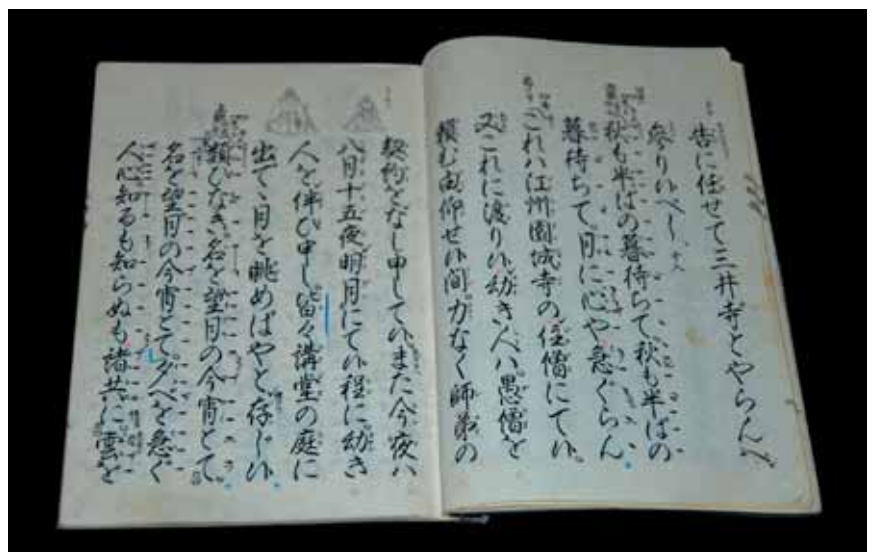 告に任せて三井寺とやらんへ
参り候べし
秋も半ばの暮待ちて秋も半ばの
暮待ちて月に心や急ぐらん
これハ江州園城寺の住僧にて候
又これに渡り候幼き人ハ愚僧を
頼む由仰せ候間力なく師弟の
契約をなし申して候また今夜ハ
八月十五夜明月にて候程に幼き
人を伴ひ申し皆々講堂の庭に
出でゝ月を眺めばやと存じ候
類ひなき名を望月の今宵とて
名を望月の今宵とて夕べを急ぐ
人心知るも知らぬも諸共に雲を